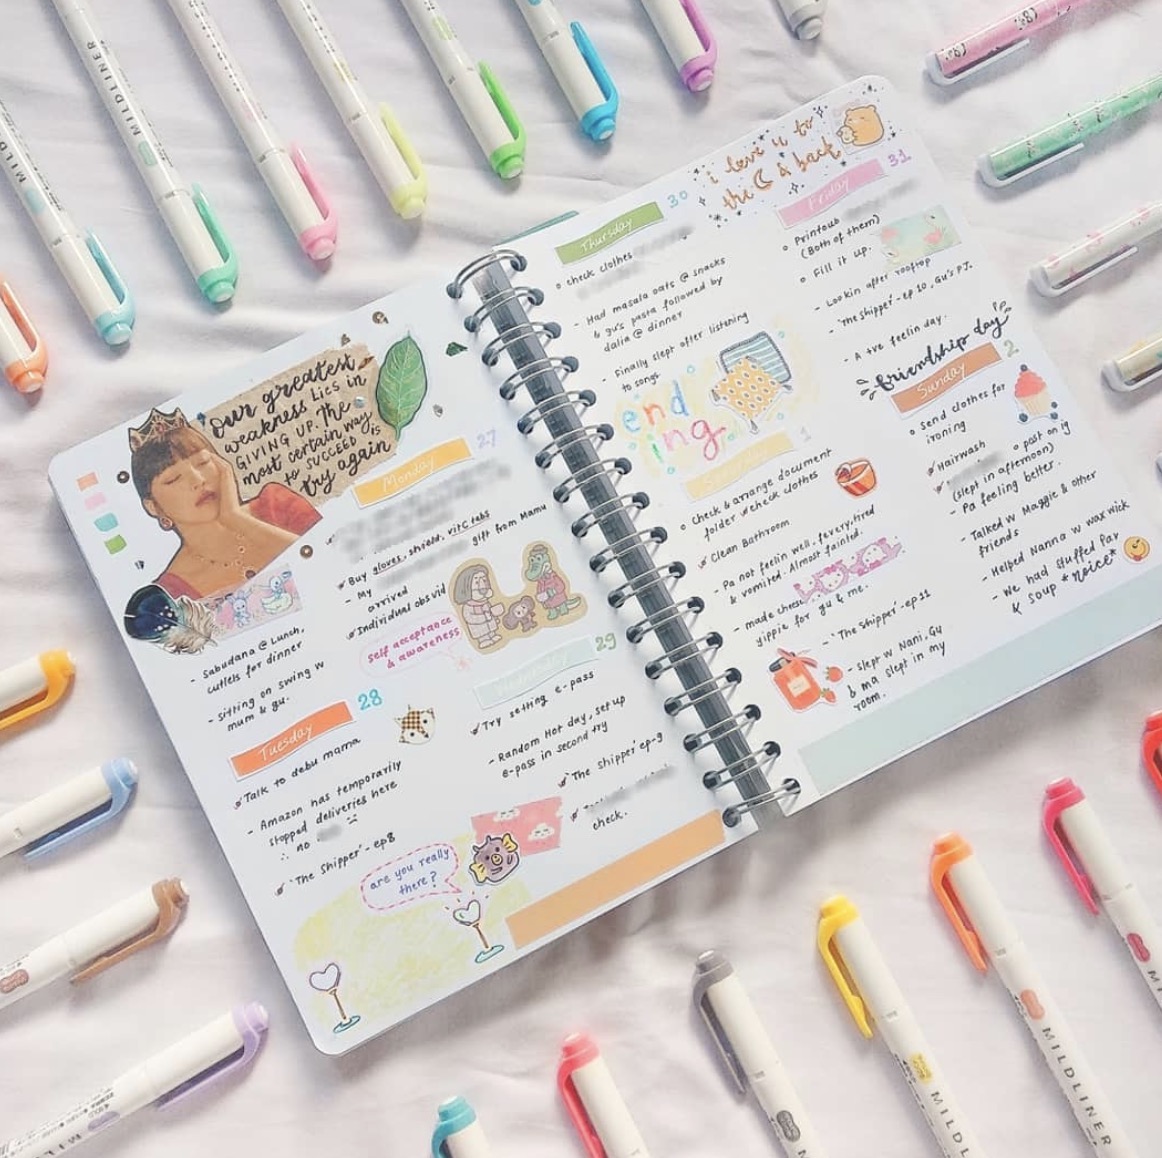 MILDLINER
MILDLINER
our greatest
weakness lies in
GIVING UP. The
most certain way
to SUCCEED is
try again
Monday
27
Buy gloves, shield, vit C tabs
- My gift from Mamu
arrived
Individual obs vid
self acceptance
& awareness
- Sabudana @ Lunch,
cutlets for dinner
- Sitting on swing w
mum & gu.
Tuesday
28
Talk to debu mama
- Amazon has temporarily
stopped deliveries here
∴ no
'The Shipper' - ep8
are you really
there?
Wednesday
29
Try setting e-pass
- Random Hot day, set up
e-pass in second try
'The Shipper' ep-9
check.
Thursday
30
check clothes
- Had masala oats @ snacks
& gu's pasta followed by
dalia @ dinner
- Finally slept after listening
to songs
end
ing
1
Check & arrange document
folder & check clothes
Clean Bathroom
- Pa not feelin well. fever, tired
& vomited. Almost fainted.
- made cheese
yippie for gu & me..
- 'The Shipper' - ep11
- Slept w Nani, Gu
& ma slept in my
room.
i love u to
the & back
Friday
31
Printouts
(Both of them)
Fill it up.
- Lookin after rooftop
- 'The Shipper' - ep 10, Gu's PJ.
- A +ve feelin day.
friendship day
Sunday
2
Send clothes for
ironing
Hairwash
post on ig
(slept in afternoon)
- Pa feeling better.
- Talked w Maggie & other
friends
- Helped Nanna w wax wick
- We had stuffed Pav
& soup *noice*
MILDLINER
MILDL